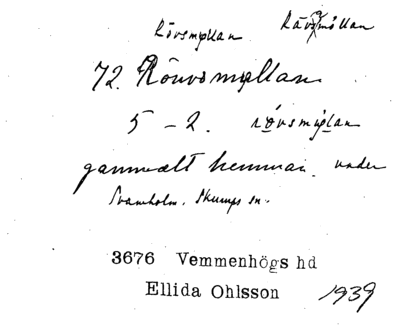 Rövsmyllan Rävsmöllan
72. Röuvsmyllan
5 – 2. rövsmylan
gammalt hemman under
Svaneholm. Skurups sn.
3676 Vemmenhögs hd
Ellida Ohlsson 1939